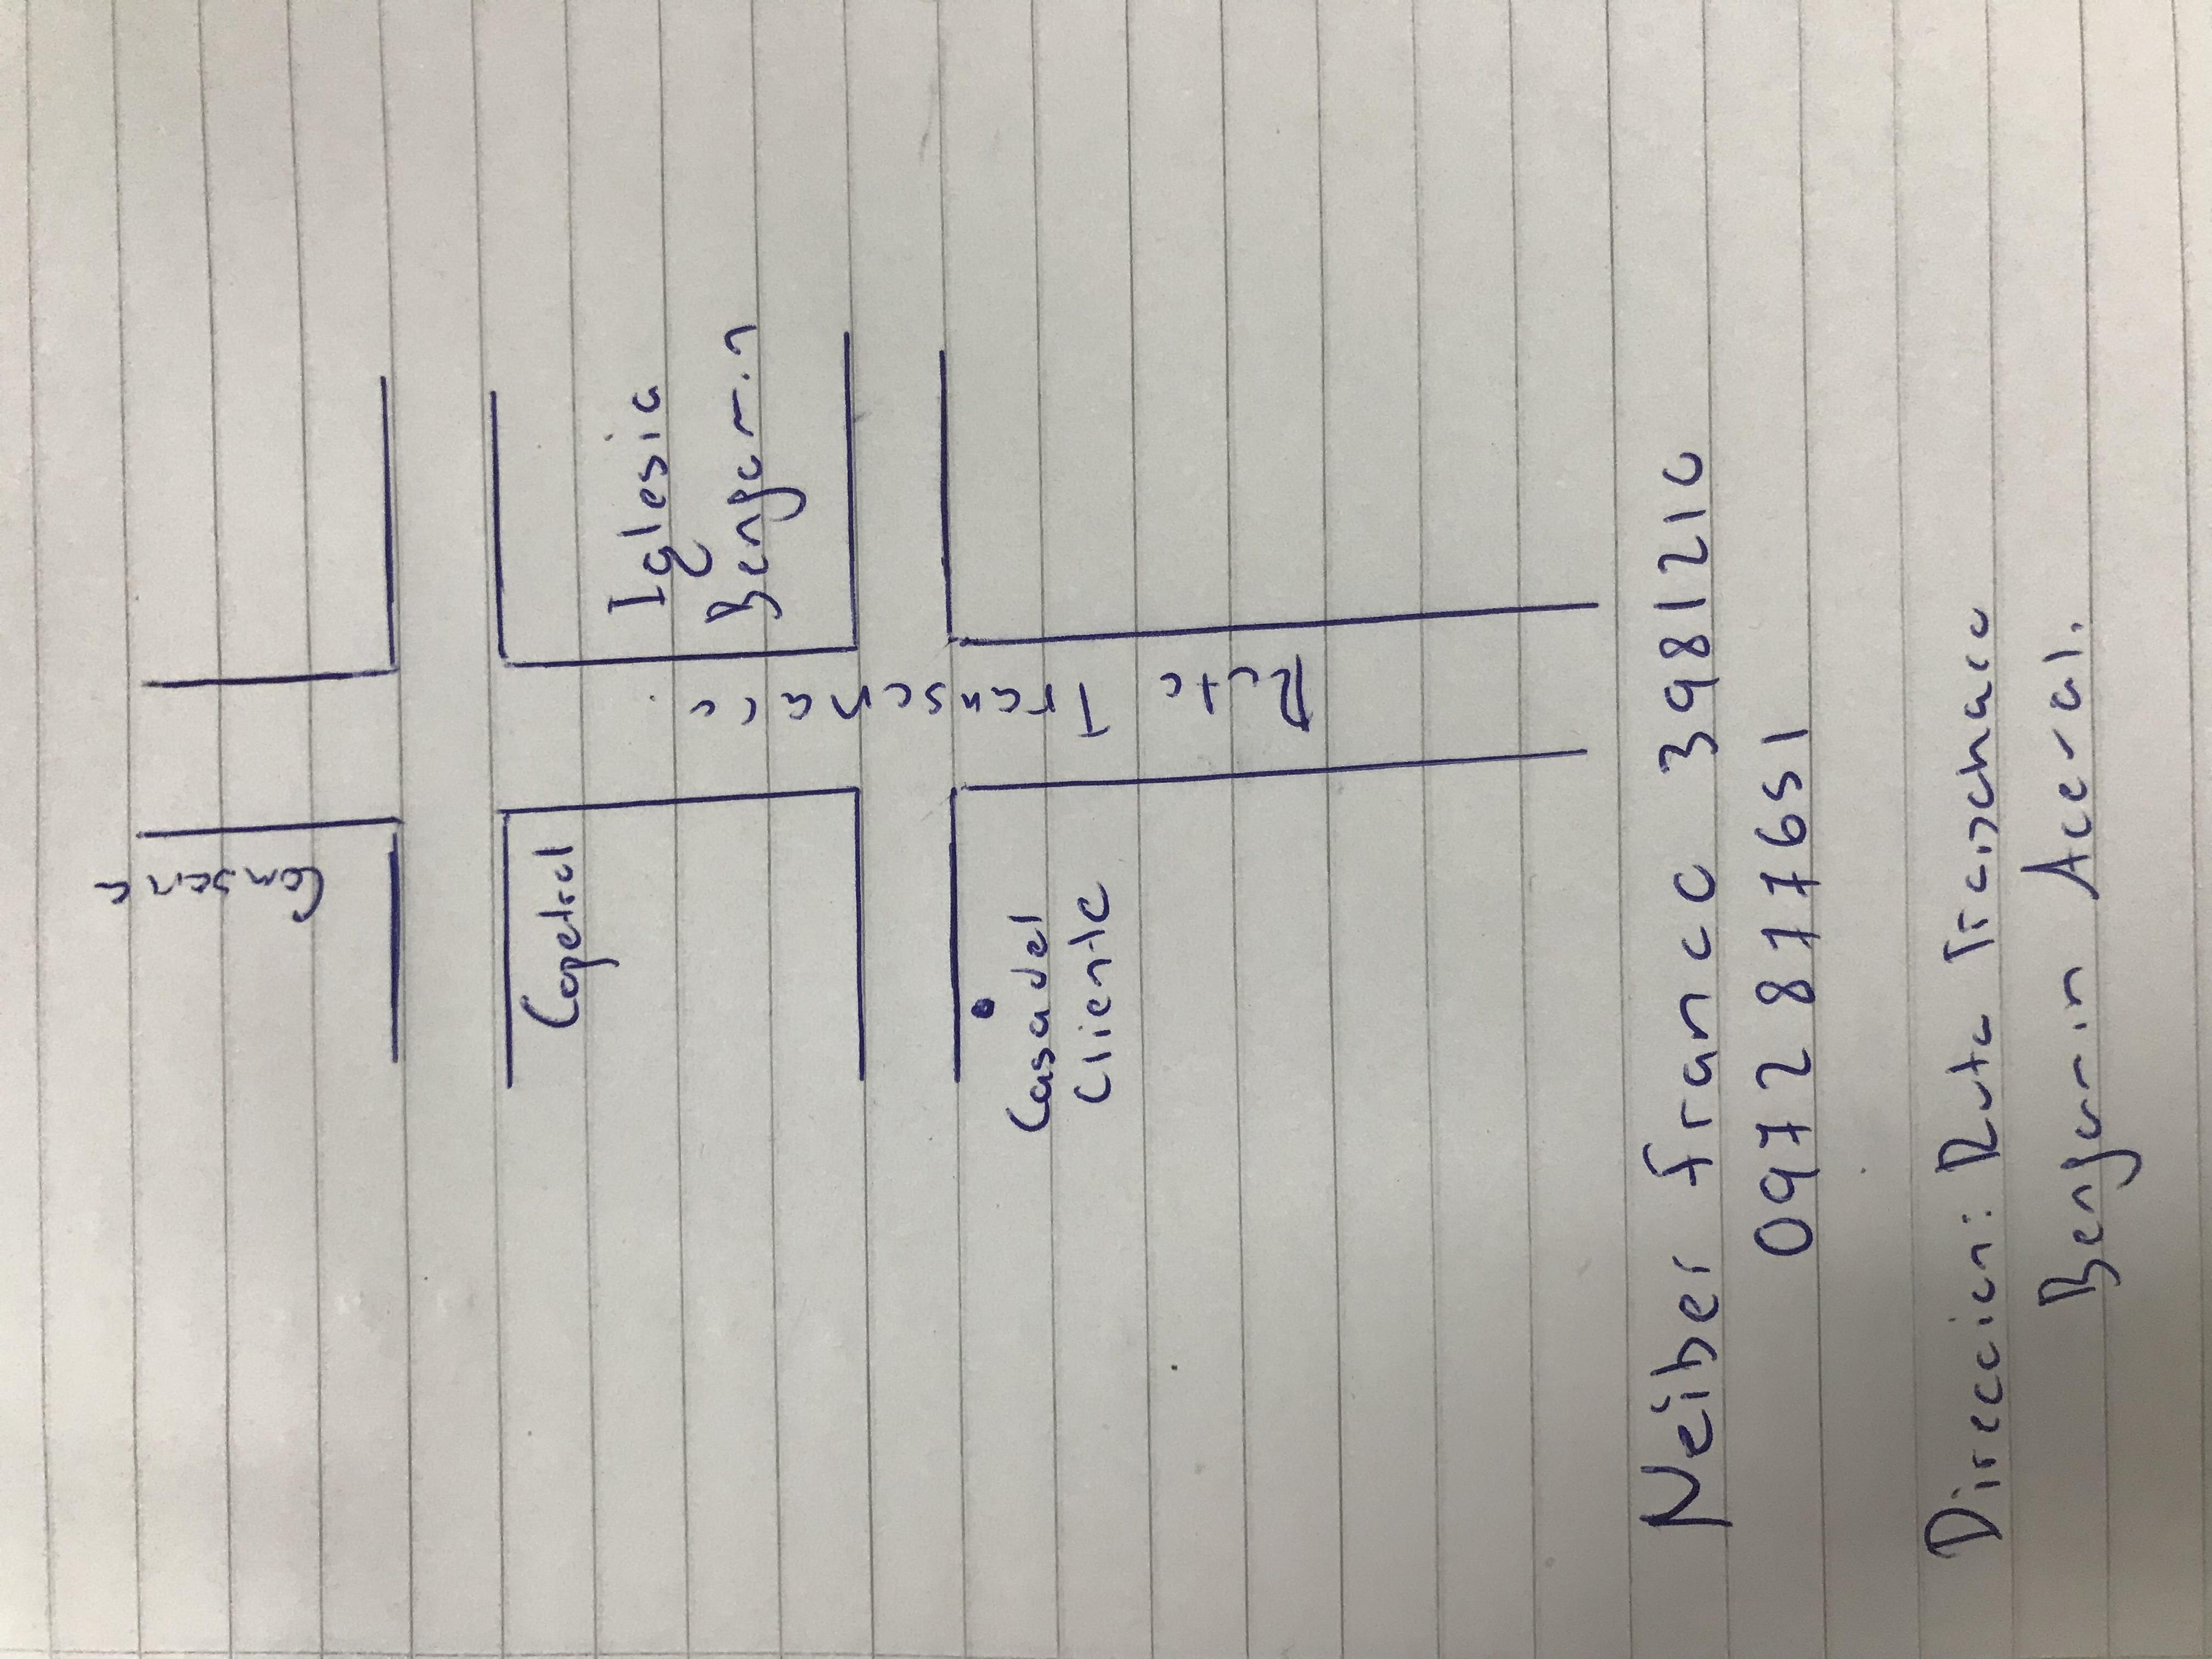 Iglesia
Bengamin
Ruta Transchaco
Copetrol
Casa del
Cliente
Neiber franco 3981210
0972 877651
Direccion: Ruta Transchaco
Bengamin Aceval.